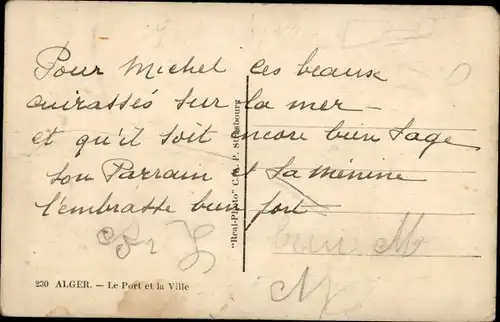 Pour Michel ces beaux
cuirassés sur la mer –
et qu'il soit encore bien sage
son Parrain et sa ménine
l'embrasse bien fort
"Real-Photo" C. A. P. Strasbourg
230 ALGER. — Le Port et la Ville